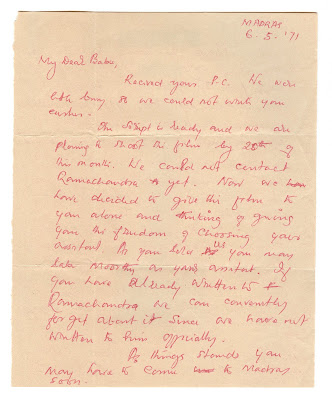 MADRAS
6.5.'71
My Dear Babu,
Recived your P.C. We were
little busy so we could not write you
earlier.
The Script is ready and we are
planing to shoot the film by 20th of
this month. We could not contact
Ramachandra yet. Now we
have decided to give this film to
you alone and thinking of giving
you the freedom of choosing your
assistant. As you told us you may
take as your assistat. If
you have already written to
Ramachandra we can conveniently
forget about it since we have not
written to him officially.
As things stands you
may have to come to Madras
soon.